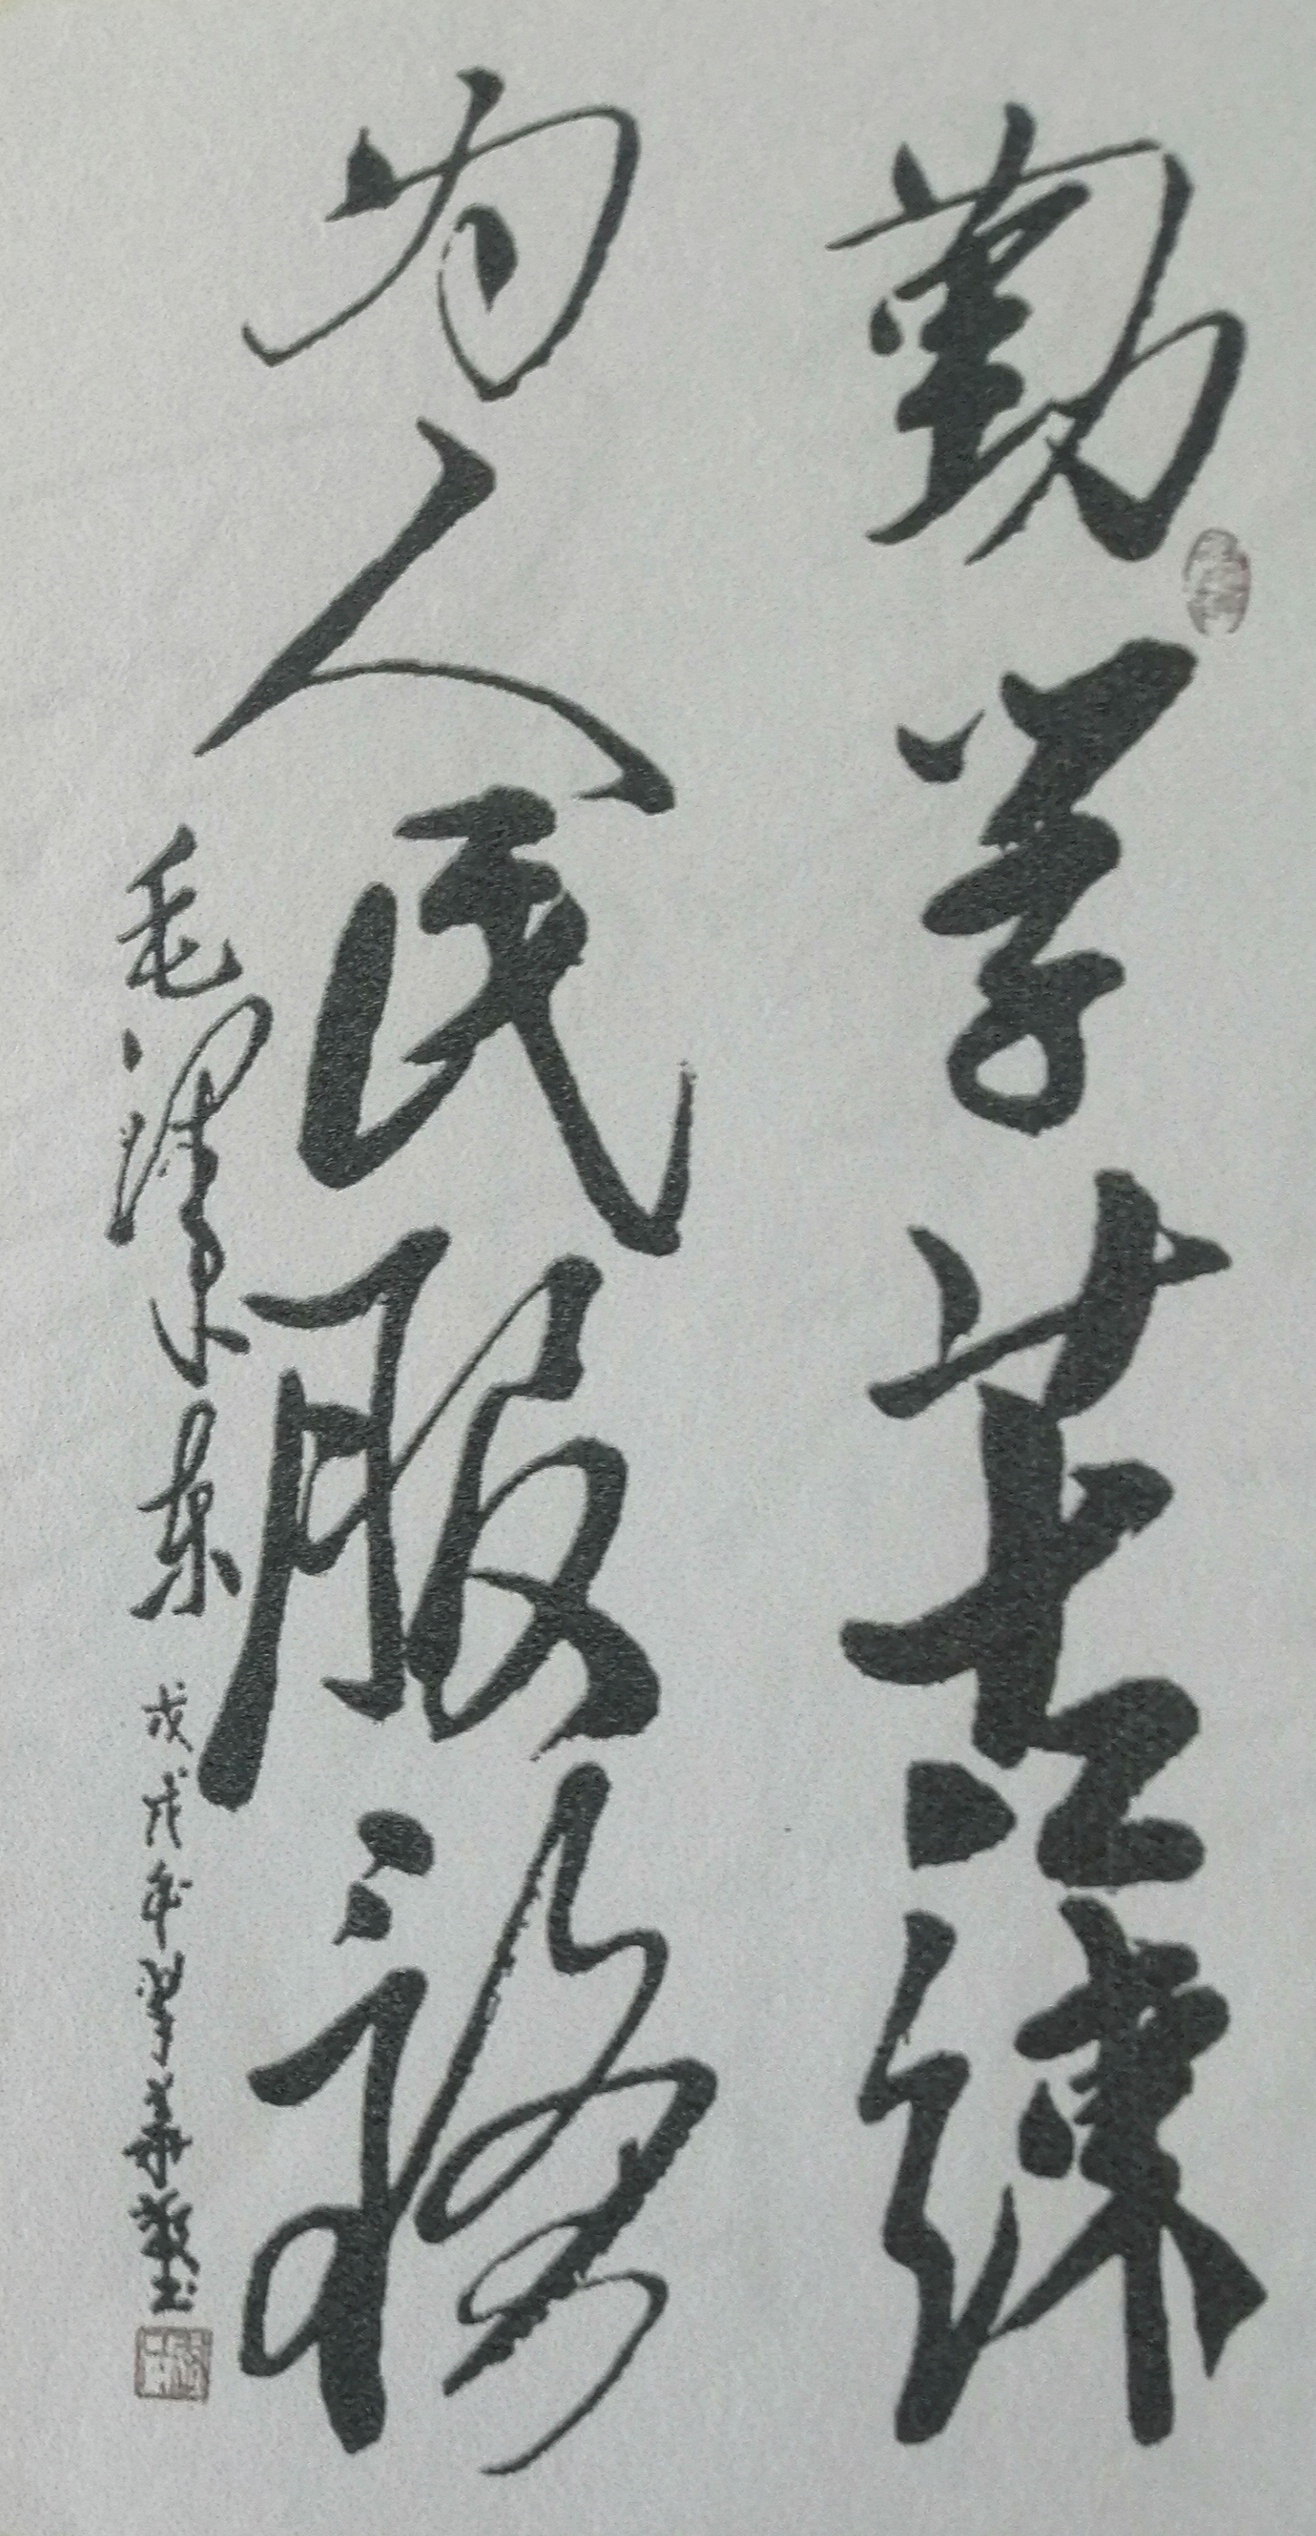 勤学苦练
为人民服務
毛泽东
戊戌年
敬书